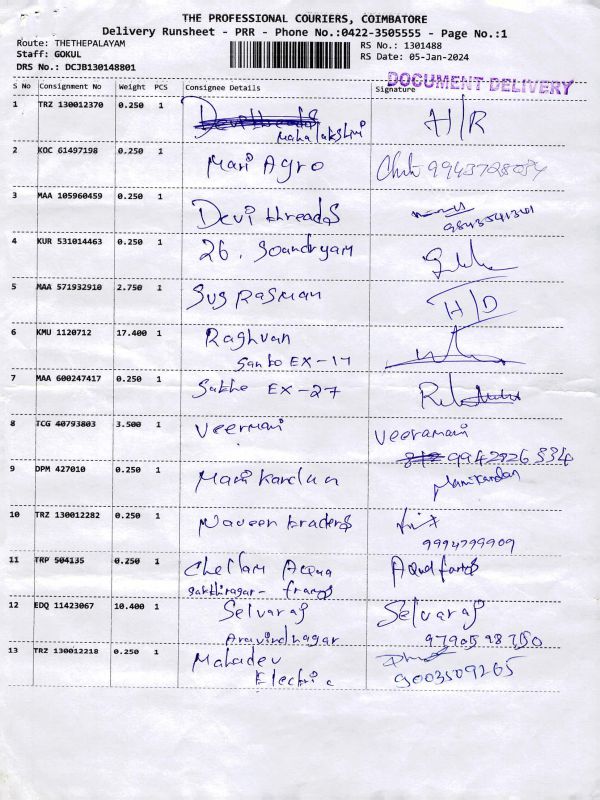 THE PROFESSIONAL COURIERS, COIMBATORE
Delivery Runsheet - PRR - Phone No.:0422-3505555 - Page No.:1
Route: THETHEPALAYAM
Staff: GOKUL
DRS No.: DCJB130148801
RS No.: 1301488
RS Date: 05-Jan-2024
DOCUMENT DELIVERY
S No Consignment No Weight PCS Consignee Details Signature
1 TRZ 130012370 0.250 1 Devi threads H/R
Mahalakshmi
2 KOC 61497198 0.250 1 Mari Agro
3 MAA 105960459 0.250 1 Devi threads
4 KUR 531014463 0.250 1 26. Soundryam
5 MAA 571932910 2.750 1 Sus Rasman H/D
6 KMU 1120712 17.400 1 Raghvan
Sanko EX-17
7 MAA 600247417 0.250 1 Sakthe EX-27
8 TCG 40793803 3.500 1 Veermani Veeramani
9942926334
9 DPM 427010 0.250 1 Manikandan Manikandan
10 TRZ 130012282 0.250 1 Naveen traders
9994799909
11 TRP 504135 0.250 1 Chellam Acqua Aqua farms
Sakthinagar - frangs
12 EDQ 11423067 10.400 1 Selvaraj Selvaraj
Aravindnagar 9790598750
13 TRZ 130012218 0.250 1 Mahadev
Electric 9003509265